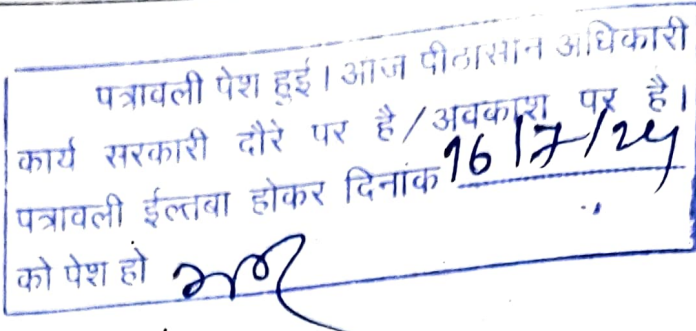 पत्रावली पेश हुई। आज पीठासीन अधिकारी
कार्य सरकारी दौरे पर है/अवकाश पर है।
पत्रावली ईल्तबा होकर दिनांक 16/7/24
को पेश हो